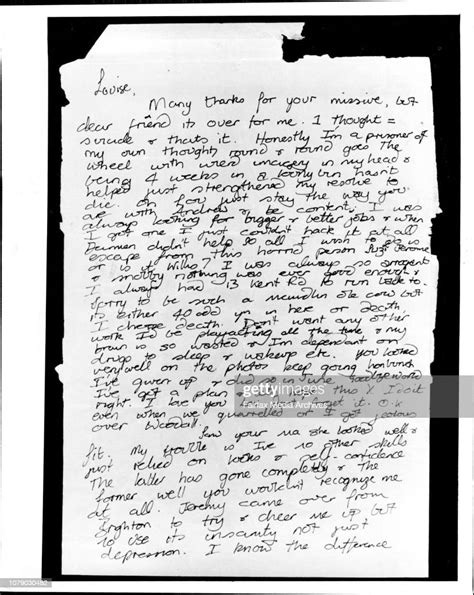 Louise,
Many thanks for your missive, but
dear friend its over for me. I thought =
suicide & thats it. Honestly Im a prisoner of
my own thoughts round & round goes the
wheel with in my head &
being 4 weeks in a loony bin hasn't
helped just strengthened my resolve to
die. Oh Lou just stay the way you
are with & be content, I was
always looking for bigger & better jobs & when
I got one I just couldn't hack it at all
didn't help so all I wish to do is
escape from this horrid person
or is it Wilks? I was always so arrogant
& snotty nothing was ever good enough &
I always had 13 Kent Rd to run back to.
Sorry to be such a ole cow but
its either 40 odd yrs in here or death
I choose death. Don't want any other
work Id be playacting all the time & my
brain is so wasted & Im dependant on
drugs to sleep & wakeup etc. You looked
very well on the photos keep going
I've given up & died in June
I've got a plan
right. I love you this & I
even when we quarrelled or I got jealous
over
Saw your ma she looked well &
fit. My trouble is I've no other skills
just relied on looks & self-confidence
The latter has gone completely & the
former well you wouldn't recognize me
at all. Jeremy came over from
Brighton to try & cheer me up but
to use its insanity not just
depression. I know the difference
gettyimages
Credit: Fairfax Media Archives
1079030482